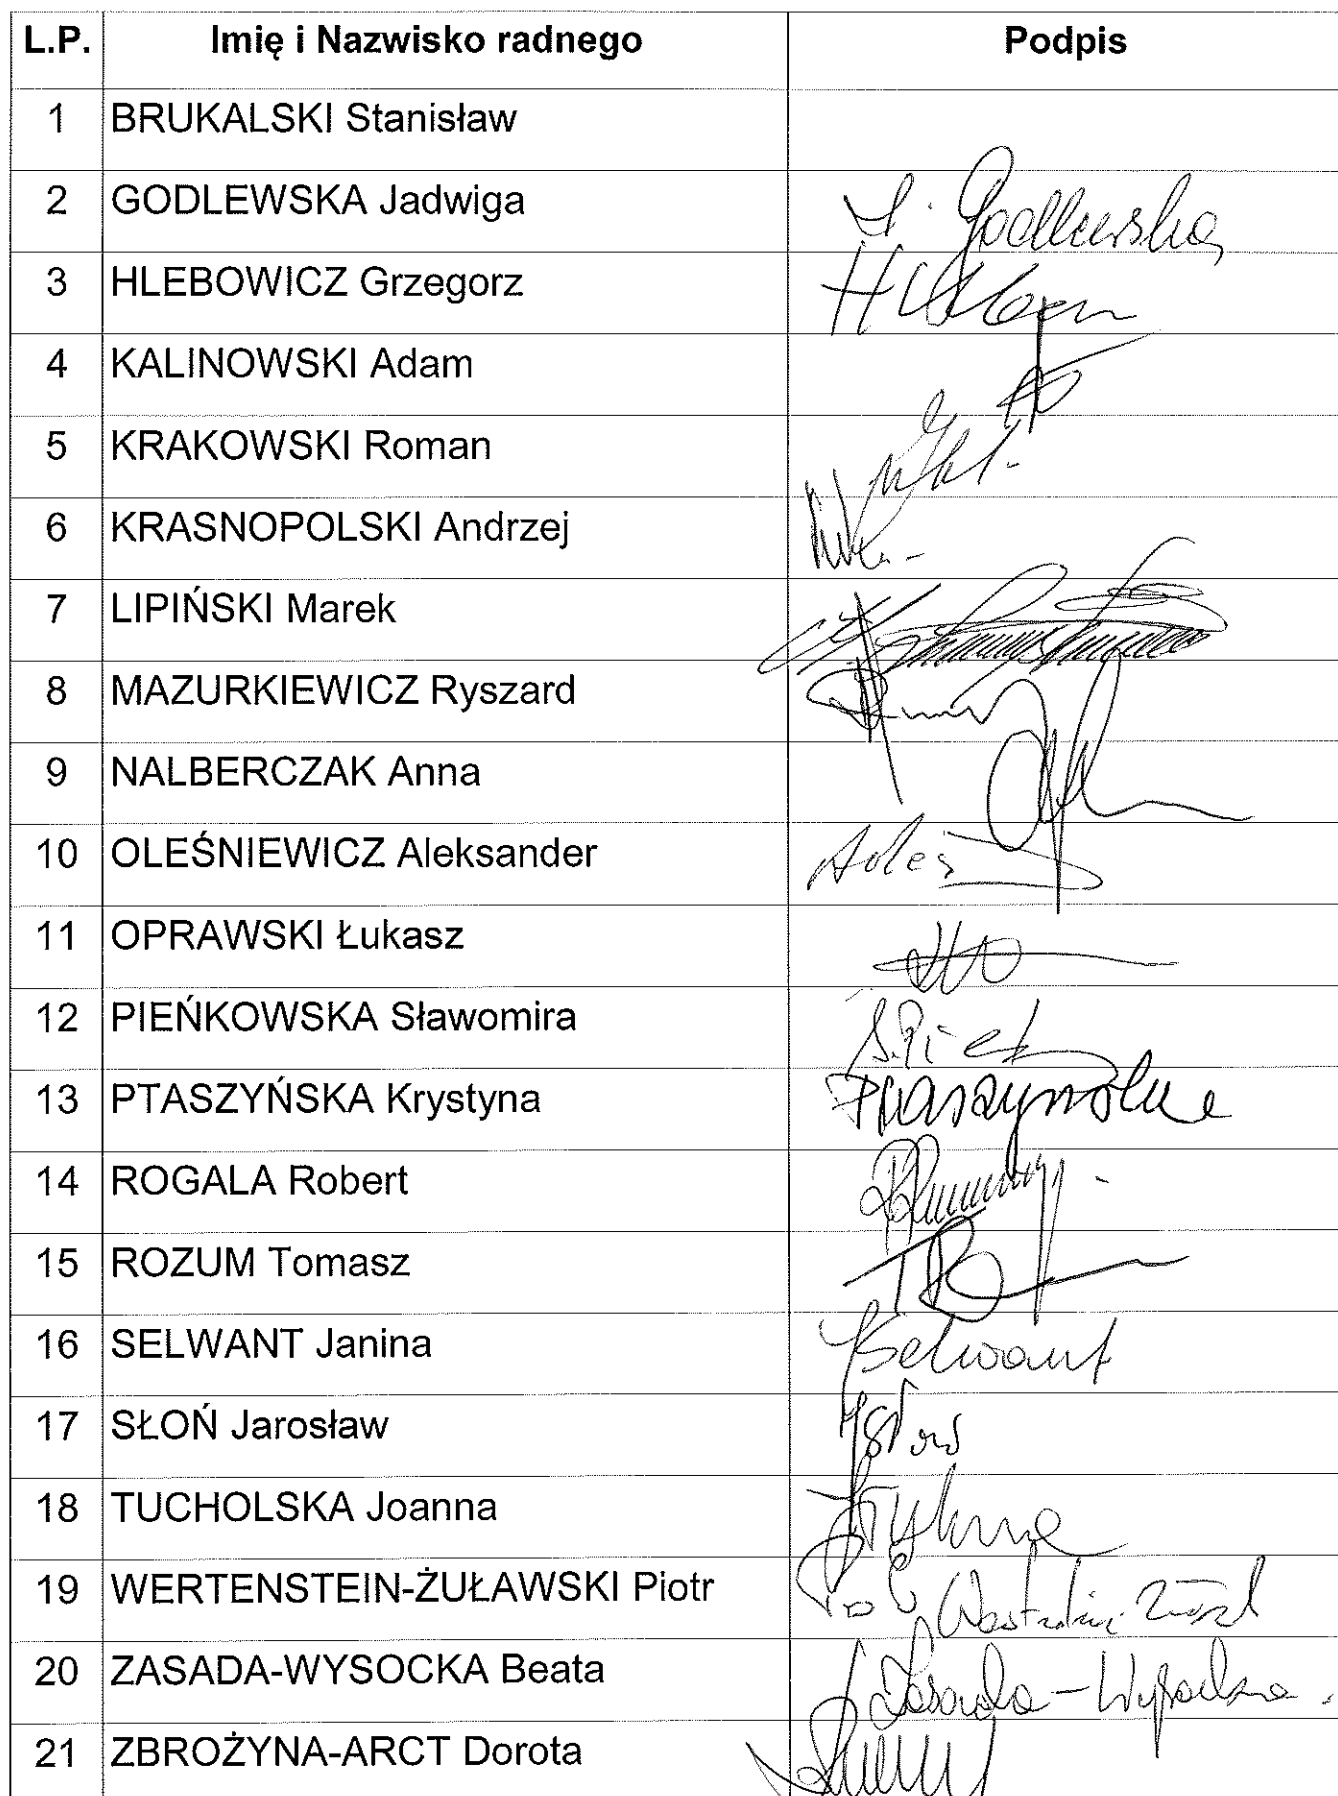 L.P. Imię i Nazwisko radnego Podpis
1 BRUKALSKI Stanisław
2 GODLEWSKA Jadwiga J. Godlewska
3 HLEBOWICZ Grzegorz
4 KALINOWSKI Adam
5 KRAKOWSKI Roman
6 KRASNOPOLSKI Andrzej
7 LIPIŃSKI Marek
8 MAZURKIEWICZ Ryszard
9 NALBERCZAK Anna
10 OLEŚNIEWICZ Aleksander
11 OPRAWSKI Łukasz
12 PIEŃKOWSKA Sławomira
13 PTASZYŃSKA Krystyna Ptaszyńska
14 ROGALA Robert
15 ROZUM Tomasz
16 SELWANT Janina JSelwant
17 SŁOŃ Jarosław JSłoń
18 TUCHOLSKA Joanna
19 WERTENSTEIN-ŻUŁAWSKI Piotr
20 ZASADA-WYSOCKA Beata Zasada-Wysocka
21 ZBROŻYNA-ARCT Dorota